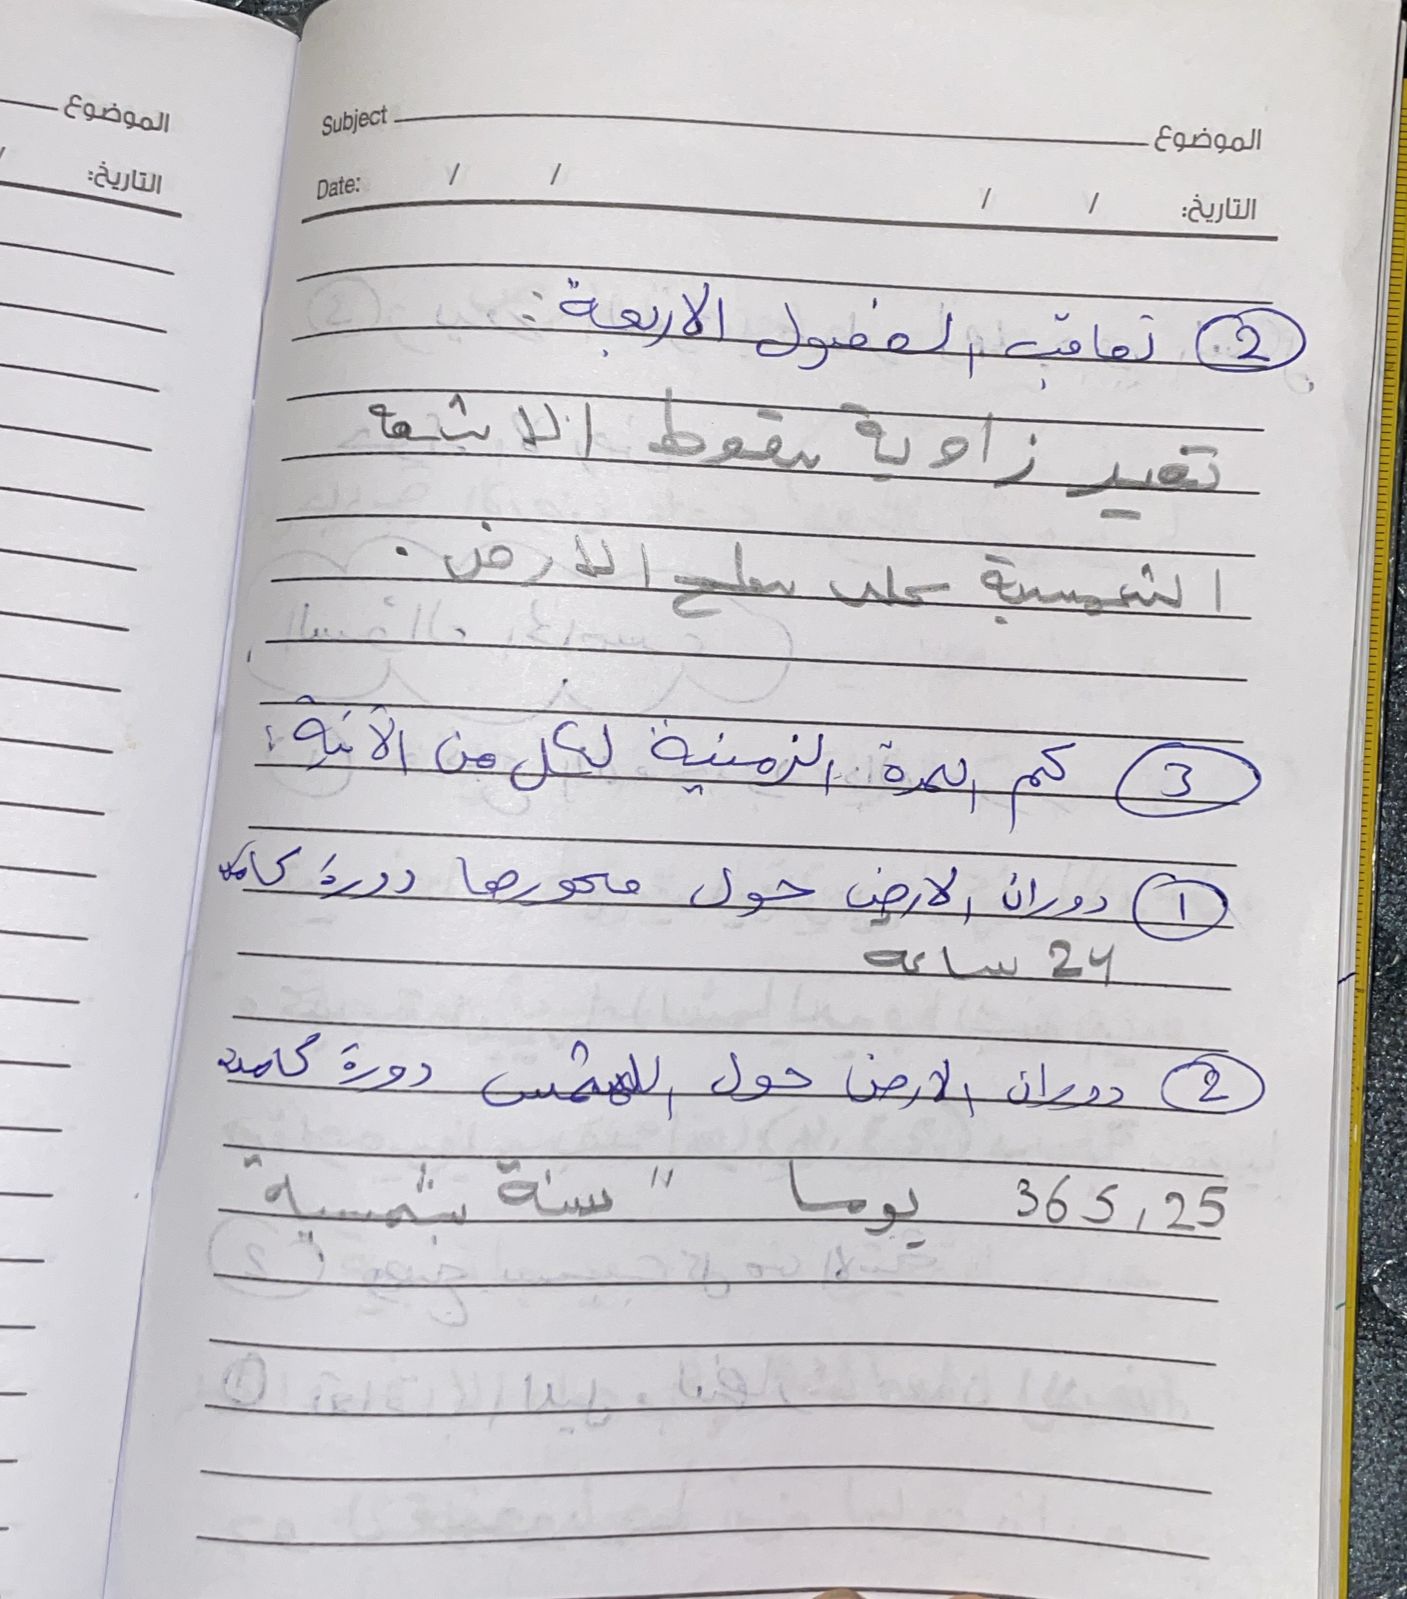 الموضوع
التاريخ: /
Subject الموضوع
Date: / / / / التاريخ:
② تعاقب الفصول الاربعة:
تغير زاوية سقوط الاشعه
الشمسية على سطح الارض.
③ كم المدة الزمنية لكل من الآتية:
① دوران الارض حول محورها دورة كاملة
24 ساعه
② دوران الارض حول الشمس دورة كاملة
365,25 يوما " سنة شمسية "